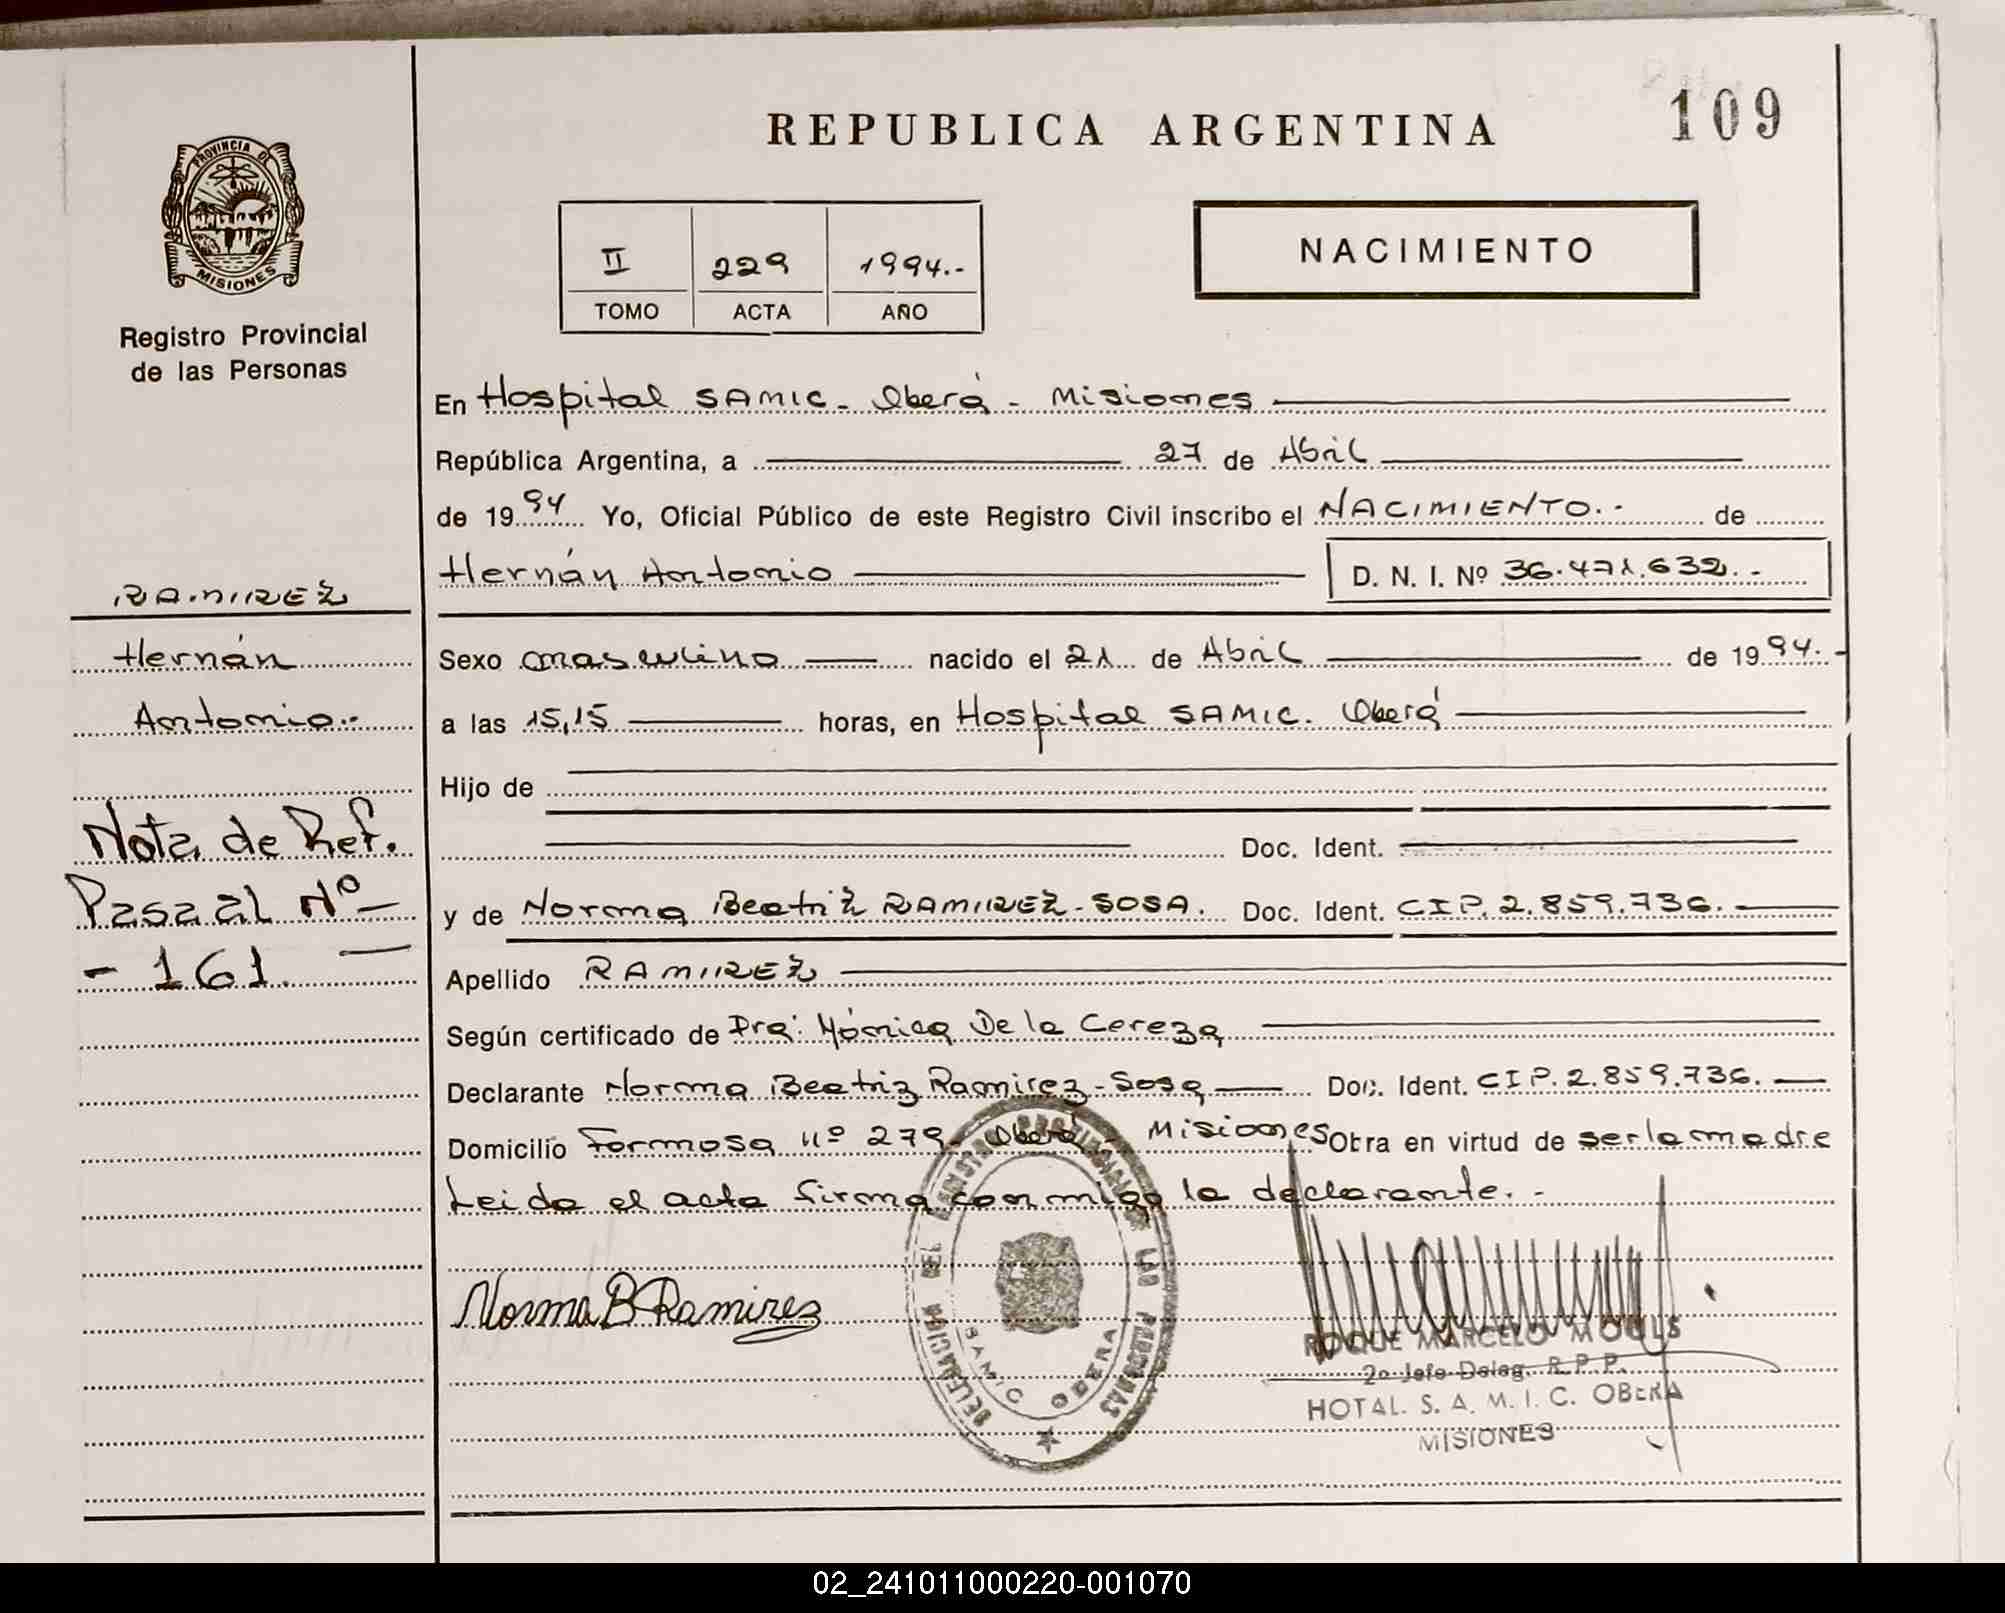 REPUBLICA ARGENTINA
109
PROVINCIA DE
MISIONES
Registro Provincial
de las Personas
II 229 1994.-
TOMO ACTA AÑO
NACIMIENTO
En Hospital SAMIC - Oberá - Misiones
República Argentina, a 27 de Abril
de 1994 Yo, Oficial Público de este Registro Civil inscribo el NACIMIENTO.- de
Hernán Antonio D. N. I. Nº 36.471.632.-
RAMIREZ
Hernán
Antonio.-
Nota de Ref.
Pasa al Nº
- 161.
Sexo masculino nacido el 21 de Abril de 1994.-
a las 15,15 horas, en Hospital SAMIC. Oberá
Hijo de
Doc. Ident.
y de Norma Beatriz RAMIREZ-SOSA. Doc. Ident. CIP. 2.859.736.
Apellido RAMIREZ
Según certificado de Dra: Mónica De la Cereza
Declarante Norma Beatriz Ramirez-Sosa Doc. Ident. CIP. 2.859.736.
Domicilio Formosa Nº 279- Oberá - Misiones Obra en virtud de ser la madre
Leida el acta firma conmigo la declarante.-
Norma B Ramirez
DELEGACION DEL REGISTRO PROVINCIAL DE LAS PERSONAS
SAMIC OBERA
ROQUE MARCELO MOULS
2o Jefe Deleg. R.P.P.
HOTAL. S. A. M. I. C. OBERA
MISIONES
02_241011000220-001070